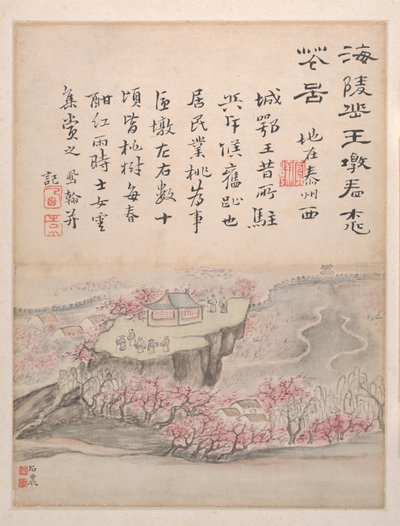 海陵岳王墩看桃
花啚 地在泰州西
城鄂王昔所駐
兵斥候舊趾也
居民業桃為事
匝墩左右數十
頃皆桃樹每春
酣紅雨時士女雲
集賞之 鳳翰并
記
石